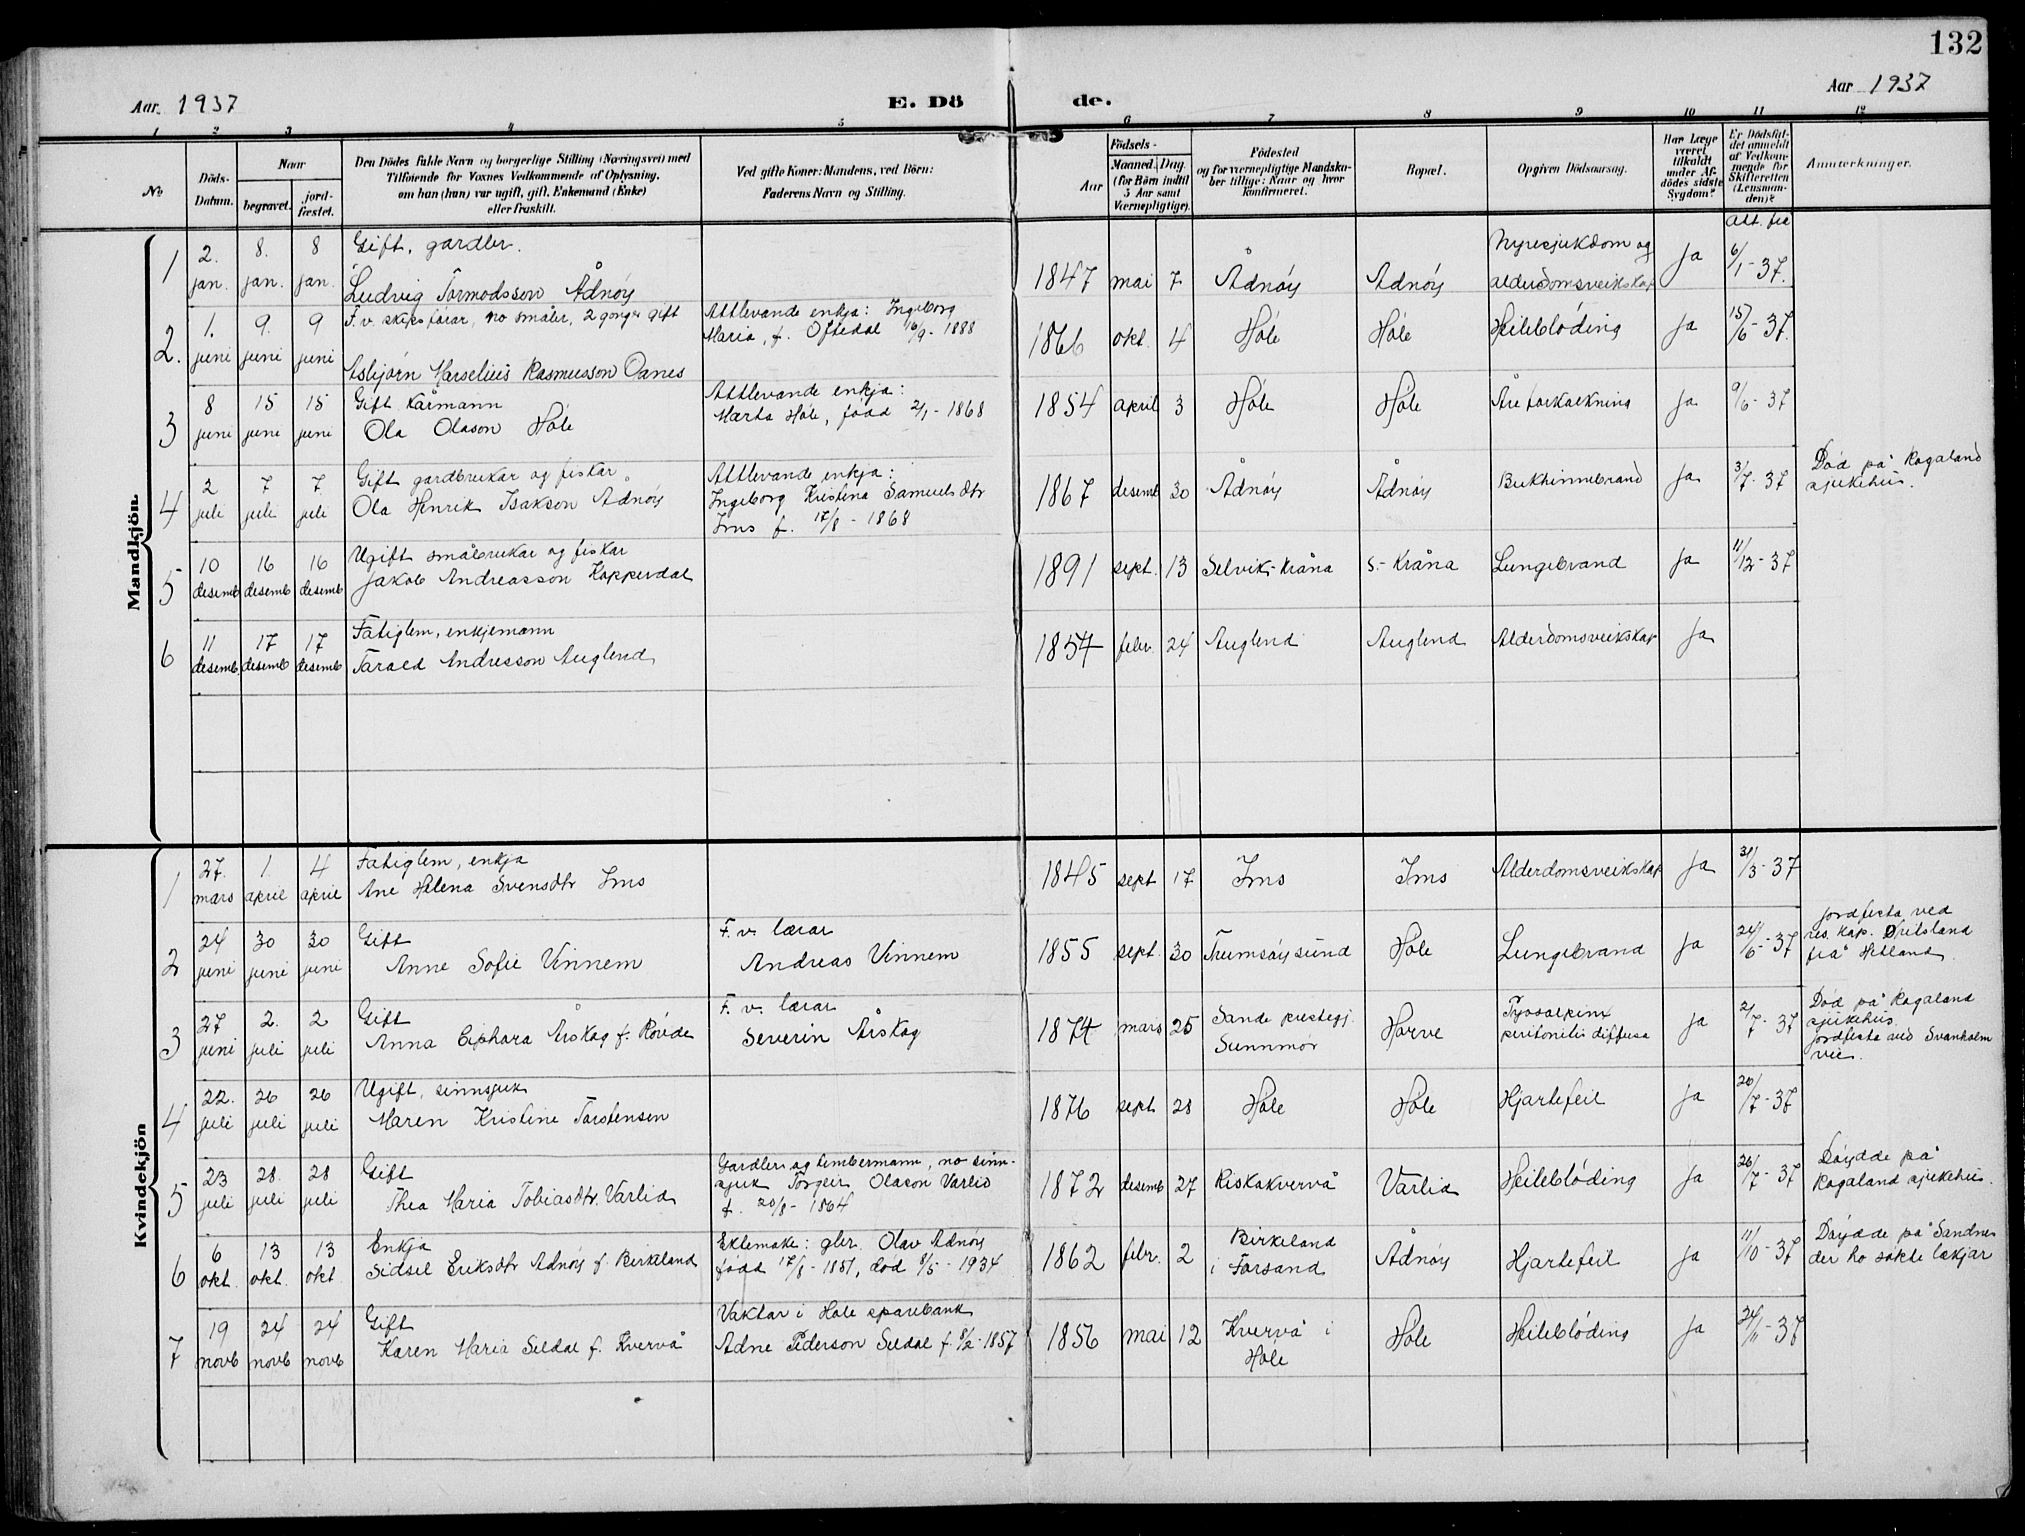 132
Aar 1937
E. Dö de.
Aar 1937
1 2 3 4 5 6 7 8 9 10 11 12
No
Döds-Datum.
Naar
begravet.
jord-fæstet.
Den Dödes fulde Navn og borgerlige Stilling (Næringsvei) med
Tilföiende for Voxnes Vedkommende af Oplysning,
om han (hun) var ugift, gift, Enkemand (Enke)
eller fraskilt.
Ved gifte Koner: Mandens, ved Börn:
Faderens Navn og Stilling.
Födsels-
Aar
Maaned. Dag.
(for Börn indtil
5 Aar samt
Værnepligtige).
Födested
og for værnepligtige Mandska-
ber tillige: Naar og hvor
konfirmeret.
Bopæl.
Opgiven Dödsaarsag.
Har Læge
været
tilkaldt
under Af-
dödes sidste
Sygdom?
Er Dödsfal-
det anmeldt
af Vedkom-
mende for
Skifteretten
(Lensman-
den)?
Anmerkninger.
Mandkjön.
1 2. jan. 8. jan. 8 jan. Gift, gardbr.
Ludvig Tormodsson Ådnøy
1847 mai 7 Ådnøy Adnøy Nyresjukdom og
alderdomsveikskap Ja Att. frå
6/1-37.
2. 1. juni 9. juni 9 juni F.v. skipsførar, no småbr, 2 gonger gift
Asbjørn Marselius Rasmusson Oanes
Attlevande enkja: Ingeborg
Maria, f. Oftedal 16/9-1888
1866 okt. 4 Høle Høle Heilebløding Ja 15/6-37.
3 8 juni 15 juni 15 juni Gift kårmann
Ola Olason Høle
Attlevande enkja:
Marta Høle, fødd 2/1-1868
1854 april 3 Høle Høle Åreforkalkning Ja 9/6-37
4 2 juli 7 juli 7 juli Gift gardbrukar og fiskar
Ola Henrik Isakson Ådnøy
Attlevande enkja:
Ingeborg Kristina Samuelsdtr
Ims f. 17/8-1868
1867 desemb 30 Ådnøy Ådnøy Bukhinnebrand Ja 3/7-37 Død på Rogaland
sjukehus.
5 10 desemb 16 desemb 16 desemb Ugift småbrukar og fiskar
Jakob Andreasson Kopperdal
1891 sept. 13 Selvik-Kråna S.-Kråna Lungebrand Ja 11/12-37
6 11 desemb 17 desemb 17 desemb Fatiglem, enkjemann
Tarald Andresson Auglend
1854 febr. 24 Auglend Auglend Alderdomsveikskap Ja
Kvindekjön
1 27. mars 1. april 4 april Fatiglem, enkja
Ane Helena Svensdtr Ims
1845 sept 17 Ims Ims Alderdomsveikskap Ja 31/3-37
2 24 juni 30 juni 30 juni Gift
Anne Sofie Vinnem
F.v. lærar
Andreas Vinnem
1855 sept. 30 Trumsøysund Høle Lungebrand Ja 24/6-37 Jordfesta ved
res. kap.
frå Hetland.
3 27 juni 2. juli 2 juli Gift
Anna Ephora Årskog f. Røvde
F.v. lærar
Severin Årskog
1874 mars 25 Sande prestegj.
Sunnmør Horve Pyosalpinx
peritonitis diffusa Ja 2/7-37 Død på Rogaland
sjukehus.
Jordfesta ved Svanholm
4 22. juli 26 juli 26 juli Ugift, sinnsjuk
Maren Kristine Torstensen
1876 sept 28 Høle Høle Hjartefeil Ja 20/7-37
5 23 juli 28. juli 28 juli Gift
Thea Maria Tobiasdtr. Varlid
Gardbr. og tømbermann, no sinn-
sjuk Torgeir Olason Varlid
f. 20/8-1864
1872 desemb 27 Riskakvervå Varlid Heilebløding Ja 26/7-37 Døydde på
Rogaland sjukehus.
6 6 okt. 13 okt. 13 okt Enkja
Sidsel Eriksdtr Adnøy f. Birkeland
Ektemake: gbr. Olav Adnøy
fødd 17/8-1851, død 8/5-1934
1862 febr. 2 Birkeland
i Forsand Ådnøy Hjartefeil Ja 11/10-37 Døydde på Sandnes
der ho søkte lækjar
7 19 novb 24 novb 24 novb Gift
Karen Maria Seldal f. Kvervå
Vaktar i Høle sparebank
Adne Pederson Seldal f. 8/2-1857
1856 mai 12 Kvervå i
Høle Høle Heilebløding Ja 24/11-37